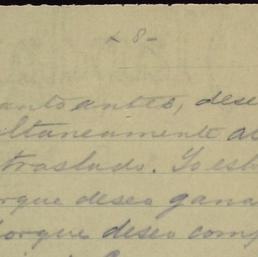 - 8 -
anto antes, dese
ultaneamente al
traslado. Yo est
rque deseo gana
orque deseo comp